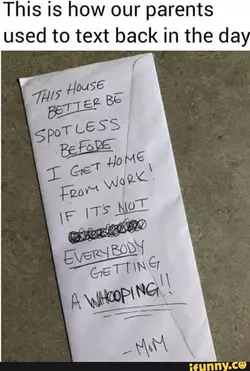 This is how our parents
used to text back in the day
THIS HOUSE
BETTER BE
SPOTLESS
BEFORE
I GET HOME
FROM WORK!
IF IT'S NOT
EVERYBODY
GETTING
A WHOOPING!!
- MOM
ifunny.co